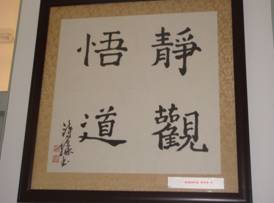 靜觀
悟道